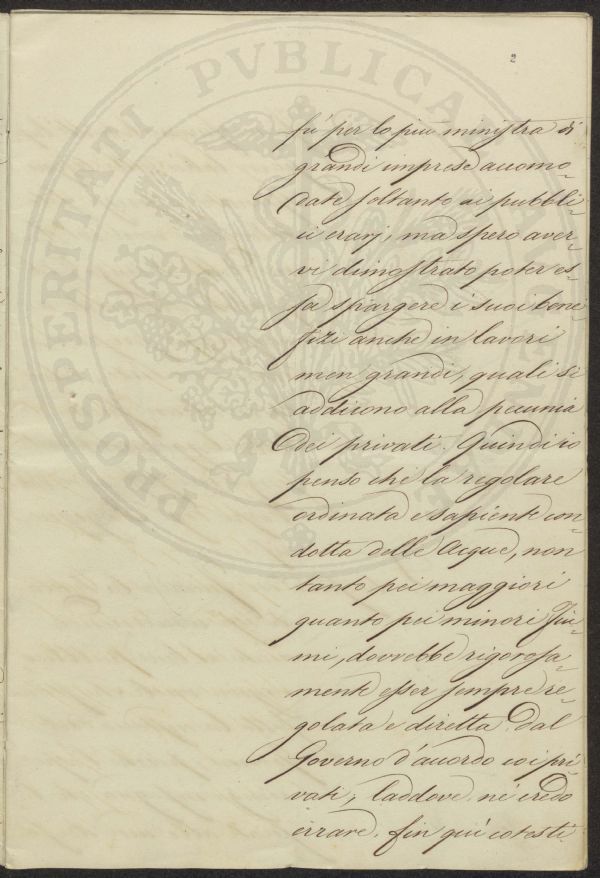 2
fu' per lo più ministra di
grandi imprese accomo-
date soltanto ai pubbli-
ci erarj, ma spero aver-
vi dimostrato poter es-
sa spargere i suoi bene-
fizi anche in lavori
men grandi, quali si
addicono alla pecunia
dei privati. Quindi io
penso che la regolare
ordinata e sapiente con-
dotta delle Acque, non
tanto pei maggiori
quanto pei minori Fiu-
mi, dovrebbe rigorosa-
mente esser sempre re-
golata e diretta dal
Governo d'accordo coi pri-
vati, laddove ne' credo
errare, fin qui cotesti
PROSPERITATI PVBLICAE